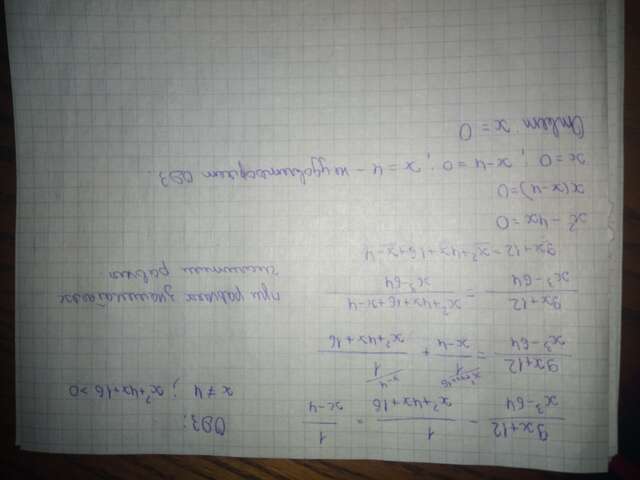 (9x+12)/(x³-64) - 1/(x²+4x+16) = 1/(x-4)
ОДЗ:
x ≠ 4 ; x²+4x+16 >0
(9x+12)/(x³-64) = 1/(x-4) + 1/(x²+4x+16)
(9x+12)/(x³-64) = (x²+4x+16+x-4)/(x³-64)
при равных знаменателях
числители равны
9x+12=x²+4x+16+x-4
x²-4x=0
x(x-4)=0
x=0 ; x-4=0 ; x=4 - не удовлетворяет ОДЗ.
Ответ: x=0